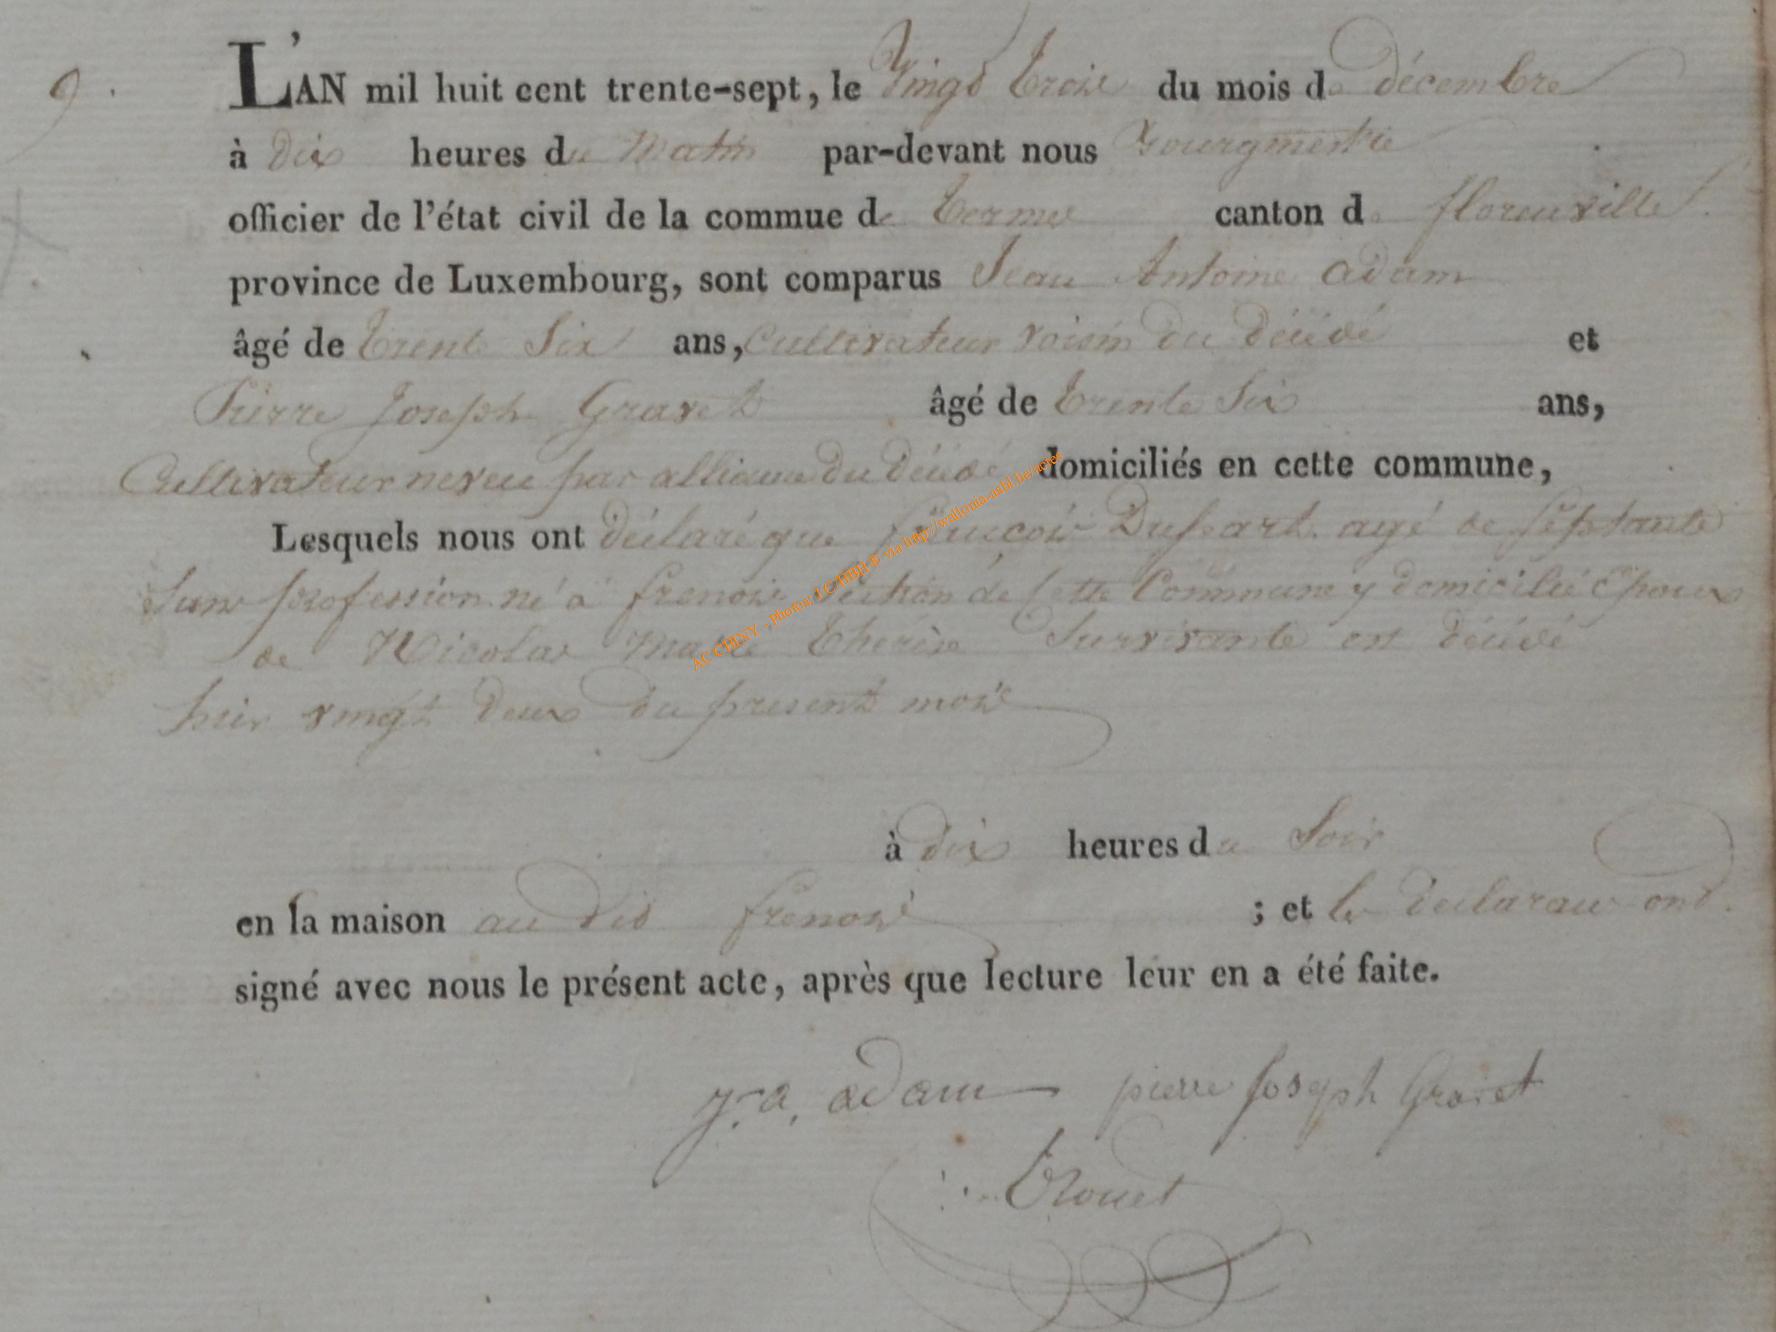 9.
L'AN mil huit cent trente-sept, le Vingt Trois du mois de décembre
à dix heures du Matin par-devant nous Bourgmestre
officier de l'état civil de la commue de Termes canton de florenville
province de Luxembourg, sont comparus Jean Antoine adam
âgé de trente Six ans, Cultivateur voisin du décédé et
Pierre Joseph Gravet âgé de trente Six ans,
Cultivateur neveu par alliance du décédé domiciliés en cette commune,
Lesquels nous ont déclaré que françois Dussart agé de septante
Sans profession né à frenois Section de cette Commune y domicilié Epoux
de Nicolas Marie Thérèse Survivante est décédé
hier vingt deux du present mois
à dix heures du Soir
en la maison au dit frenois ; et les declarans ont
signé avec nous le présent acte, après que lecture leur en a été faite.
J. a. adam pierre Joseph Gravet